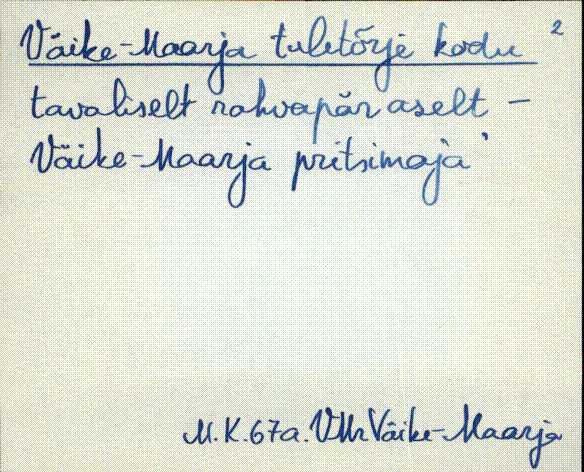 Väike-Maarja tuletõrje kodu 2
tavaliselt rahvapäraselt –
Väike-Maarja pritsimaja'
M.K.67a. VMr Väike-Maarja